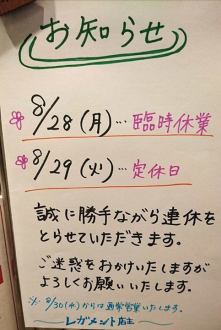 お知らせ
8/28(月)…臨時休業
8/29(火)…定休日
誠に勝手ながら連休を
とらせていただきます。
ご迷惑をおかけいたしますが
よろしくお願いいたします。
※8/30(水)からは通常営業いたします。
レガメント店主